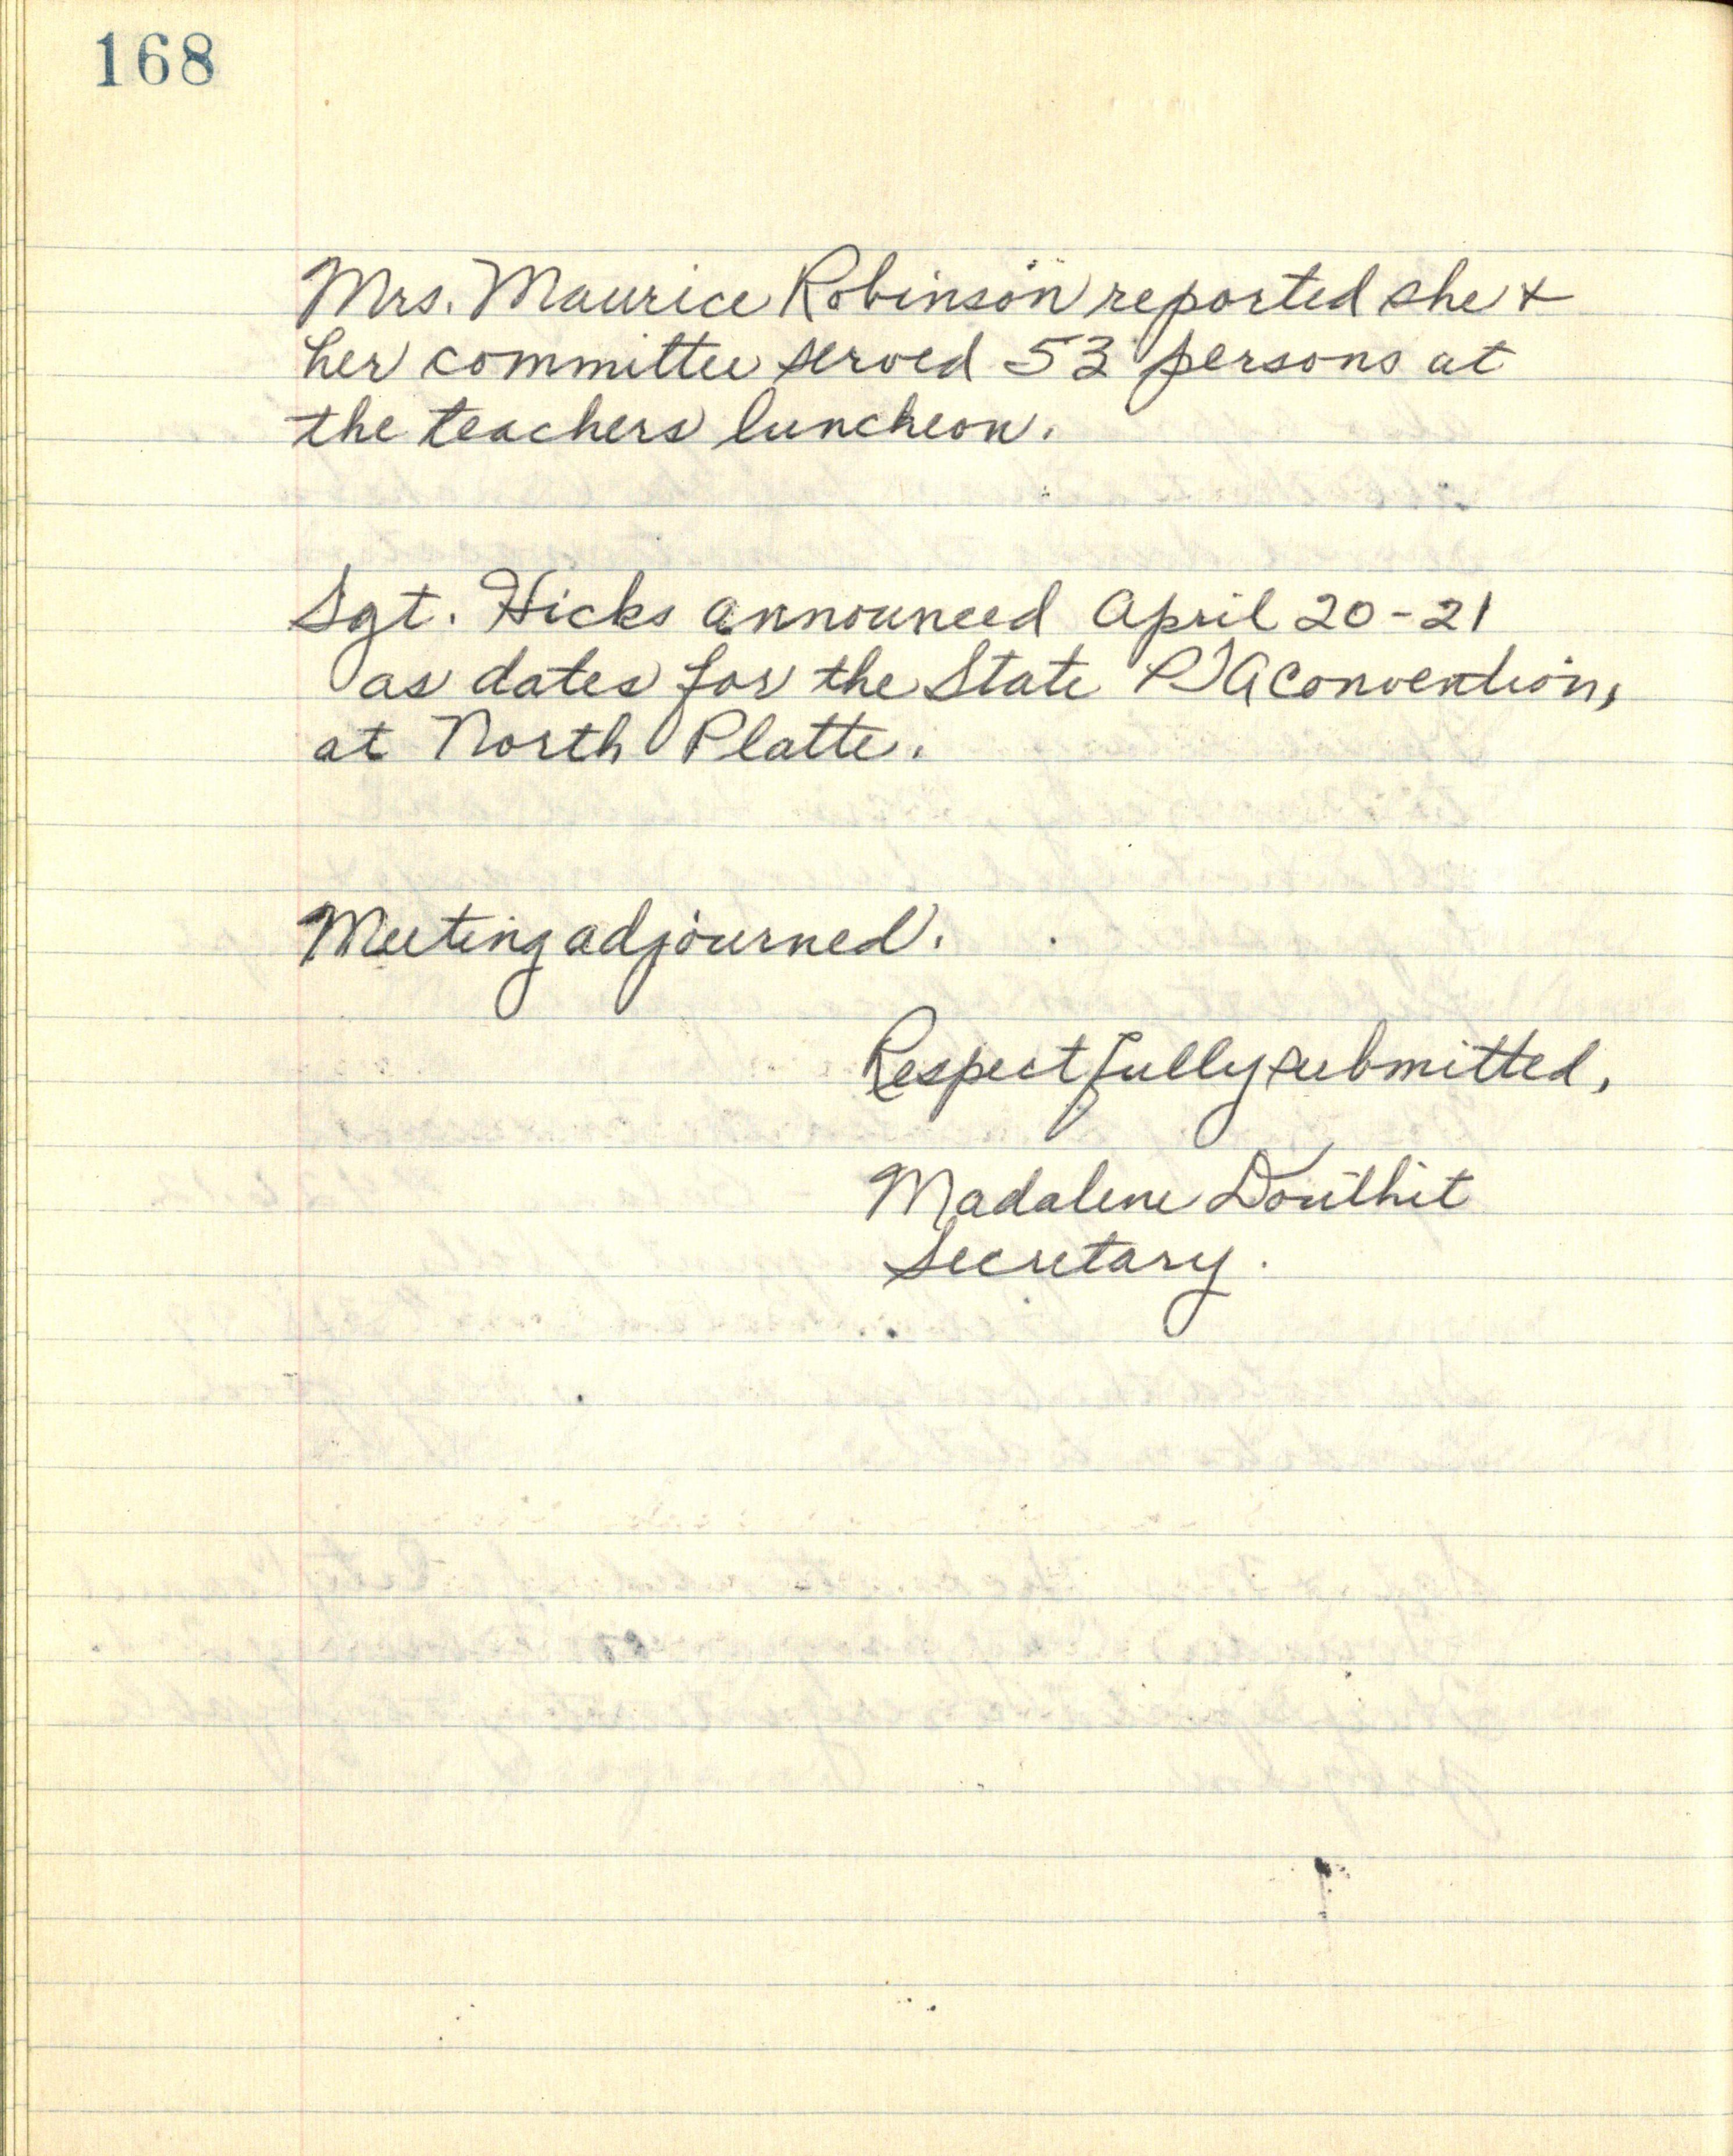 168
Mrs. Maurice Robinson reported she +
her committee served 53 persons at
the teachers luncheon.
Sgt. Hicks announced April 20-21
as dates for the State PTA convention,
at North Platte.
Meeting adjourned.
Respectfully submitted,
Madalene Douthit
Secretary.